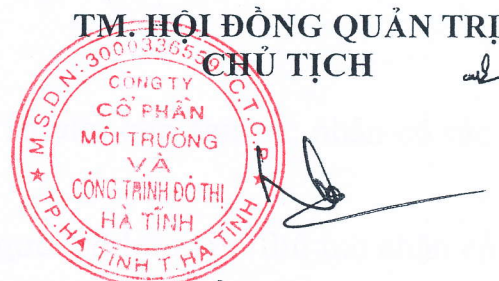 TM. HỘI ĐỒNG QUẢN TRỊ
CHỦ TỊCH
M.S.D.N: 3000336559 C.T.C.P
CÔNG TY
CỔ PHẦN
MÔI TRƯỜNG
VÀ
CÔNG TRÌNH ĐÔ THỊ
HÀ TĨNH
TP.HÀ TĨNH T.HÀ TĨNH